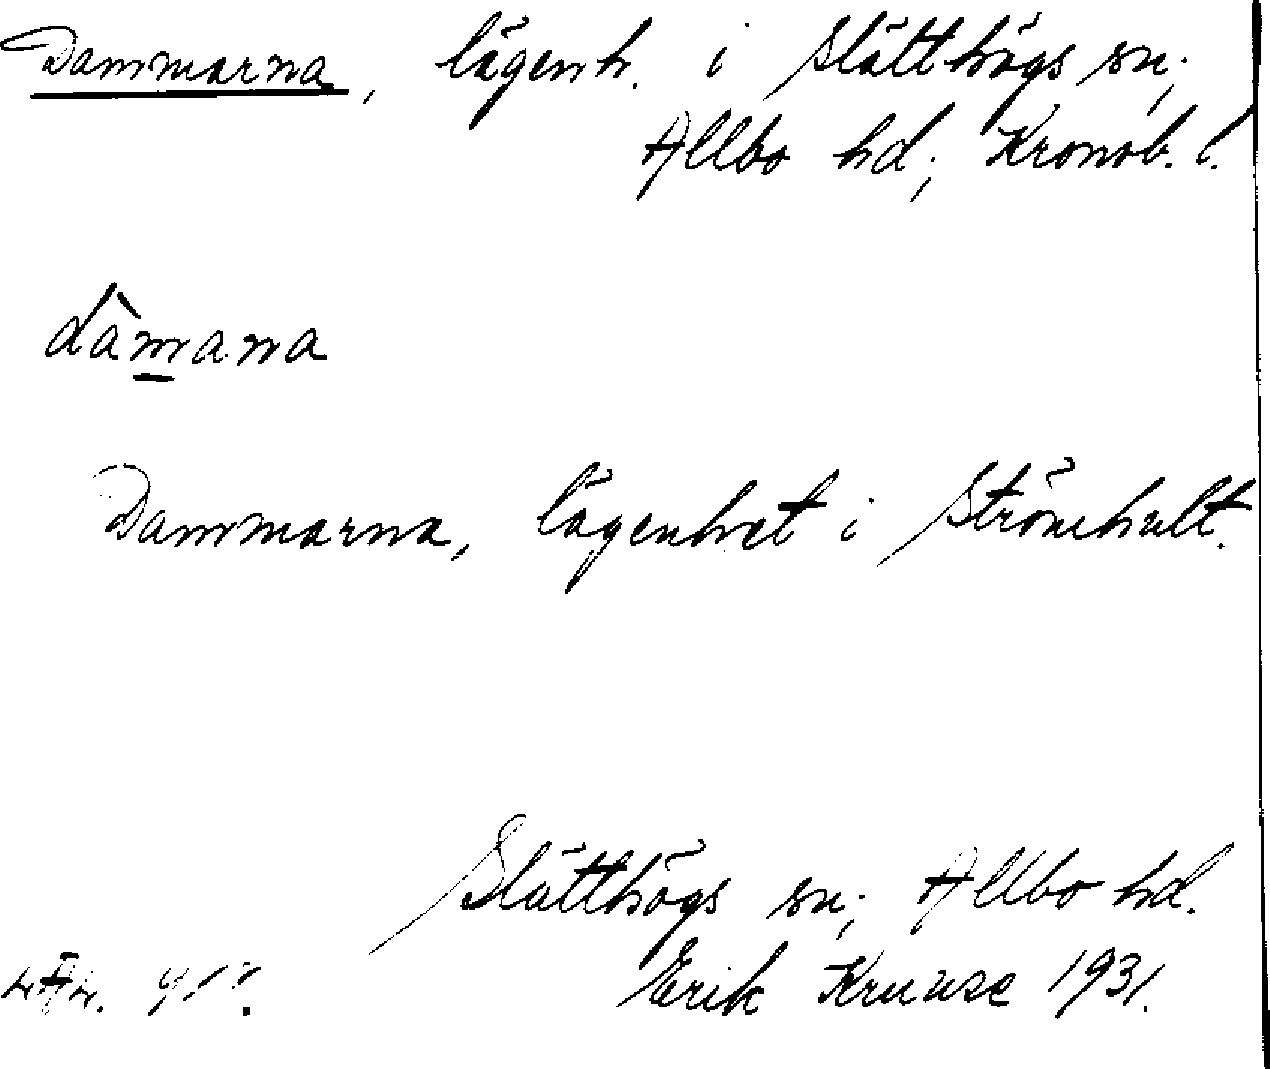 Dammarna, lägenh. i Slätthögs sn;
Allbo hd; Kronob. l.
dàmana
Dammarna, lägenhet i Strömhult.
Slätthögs sn; Allbo hd.
Erik Kruuse 1931.